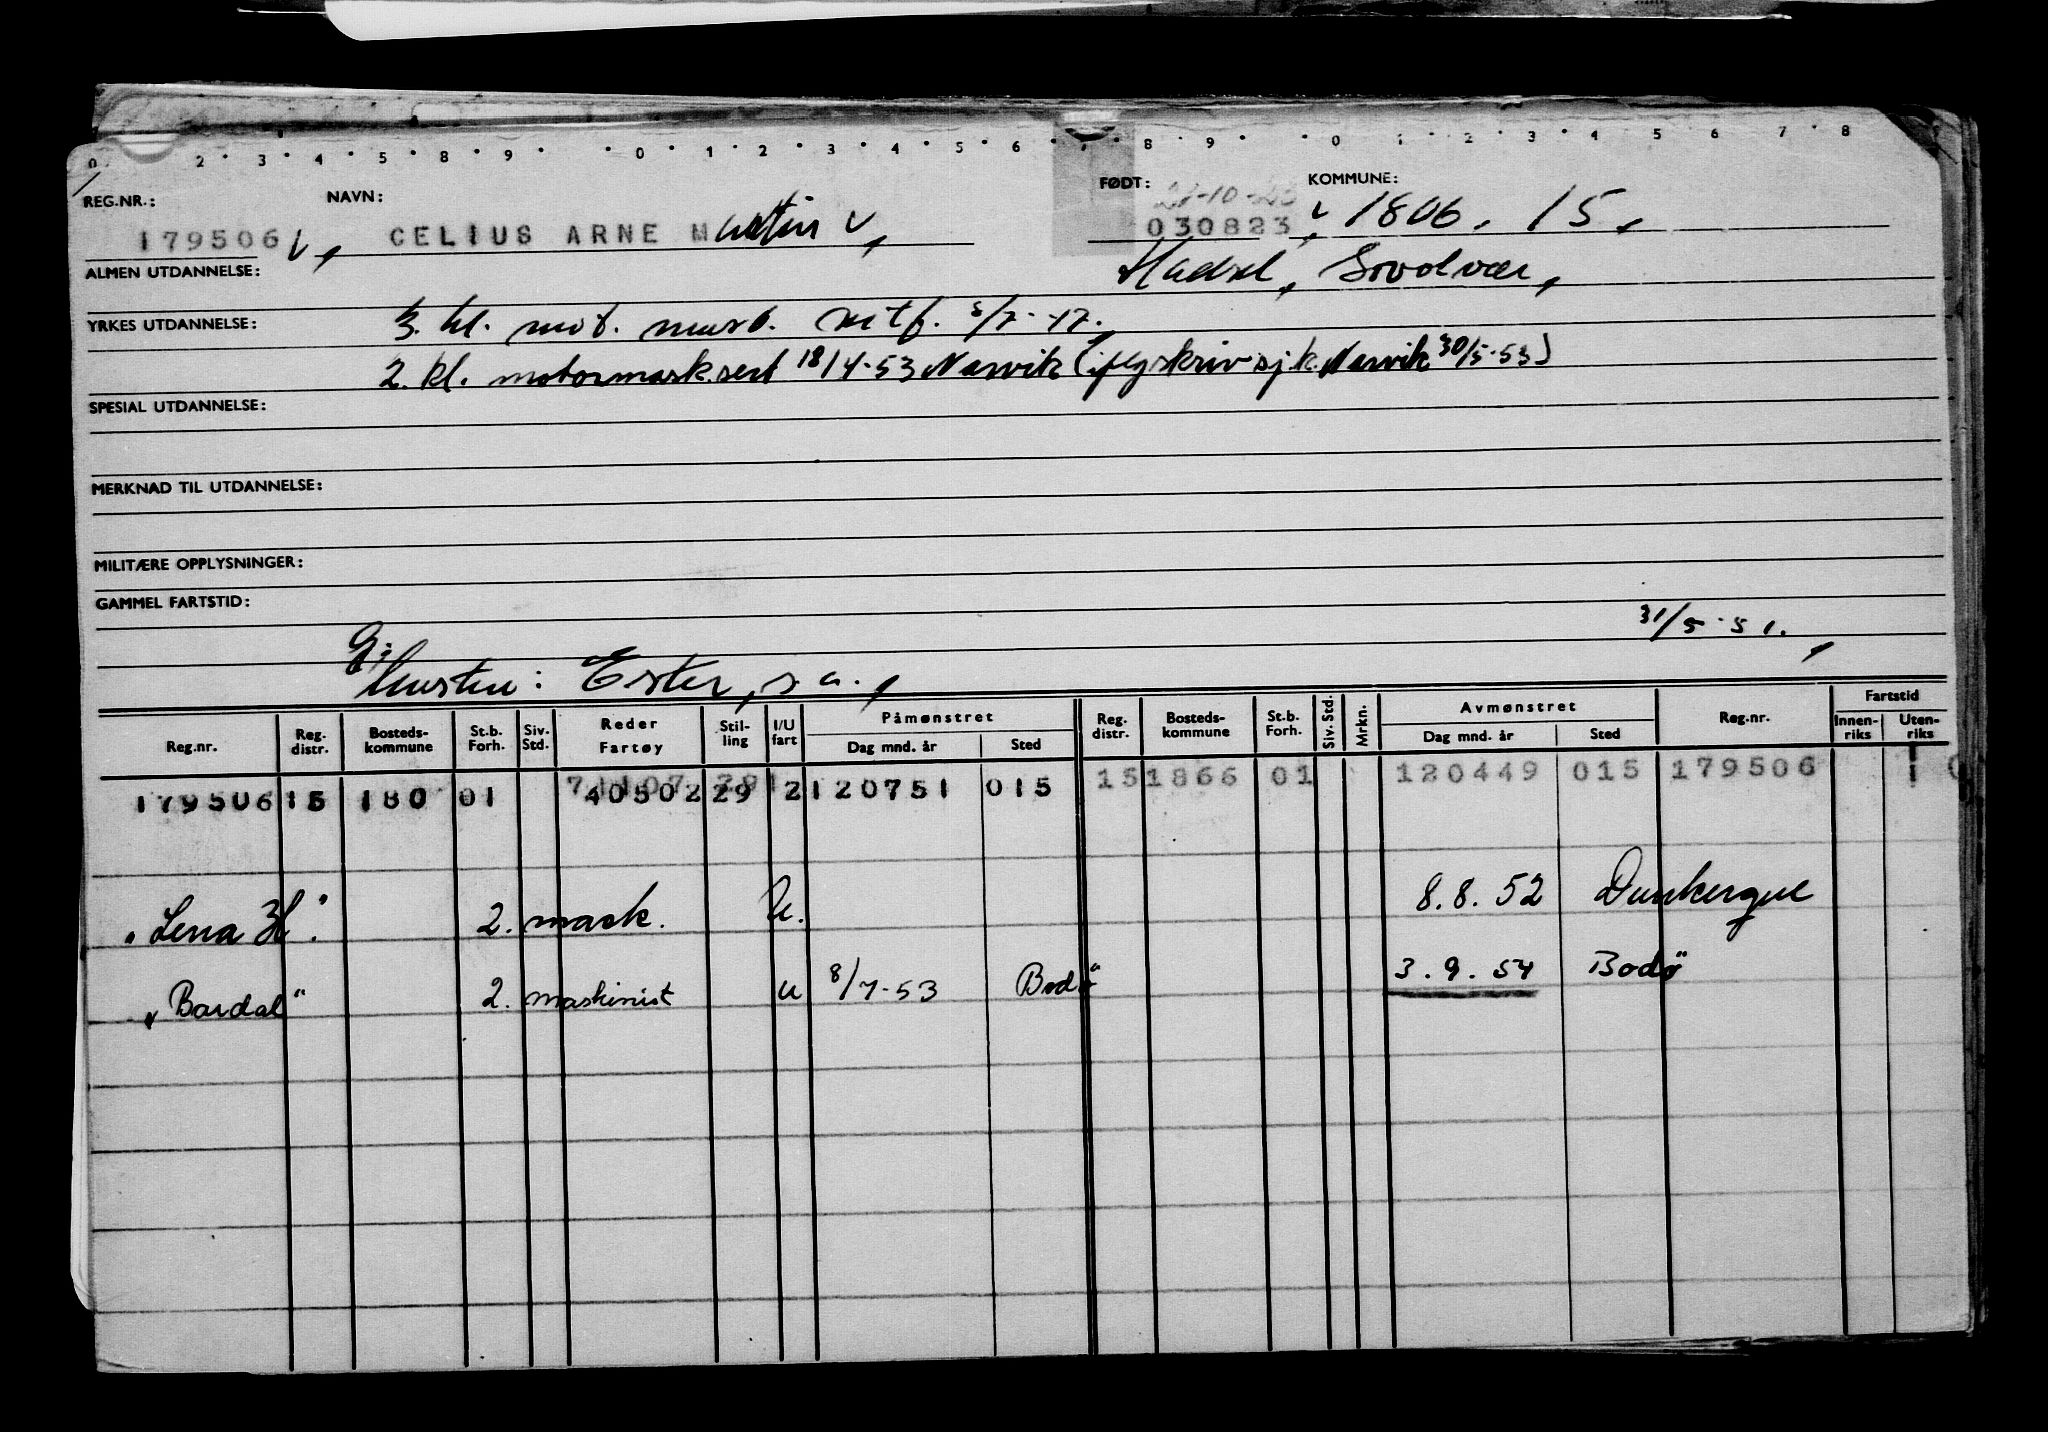 0 2 · 3 · 4 · 5 · 8 · 9 · · 0 · 1 · 2 · 3 · 4 · 5 · 6 · 7 · 8 · 9 · · 0 1 · 2 · 3 · 4 · 5 6 7 · 8
REG.NR.: NAVN: FØDT: KOMMUNE:
21-10-23
179506 CELIUS ARNE Martin 030823 1806. 15.
ALMEN UTDANNELSE: Hadsel, Svolvær,
YRKES UTDANNELSE: 3. kl. mot. mask. 5/7-47.
2. kl. motormask.sert 18/4-53 Narvik (iflg skriv sj.k. Narvik 30/5-53)
SPESIAL UTDANNELSE:
MERKNAD TIL UTDANNELSE:
MILITÆRE OPPLYSNINGER:
GAMMEL FARTSTID:
31/5-51.
Gi
Hustru: Ester, s.a.,
Reg.nr. Reg. distr. Bosteds-kommune St.b. Forh. Siv. Std. Reder Fartøy Stil-ling I/U fart Påmønstret Dag mnd. år Sted Reg. distr. Bosteds-kommune St.b. Forh. Siv. Std. Mrkn. Avmønstret Dag mnd. år Sted Reg.nr. Fartstid Innen-riks Uten-riks
151866 01 120449 015 179506 1 0
179506 15 180 01 40502 29 2 120751 015
"Lena H". 2. mask. U. 8.8.52 Dunkerque
"Bardal" 2. maskinist U 8/7-53 Bodö 3.9.54 Bodö